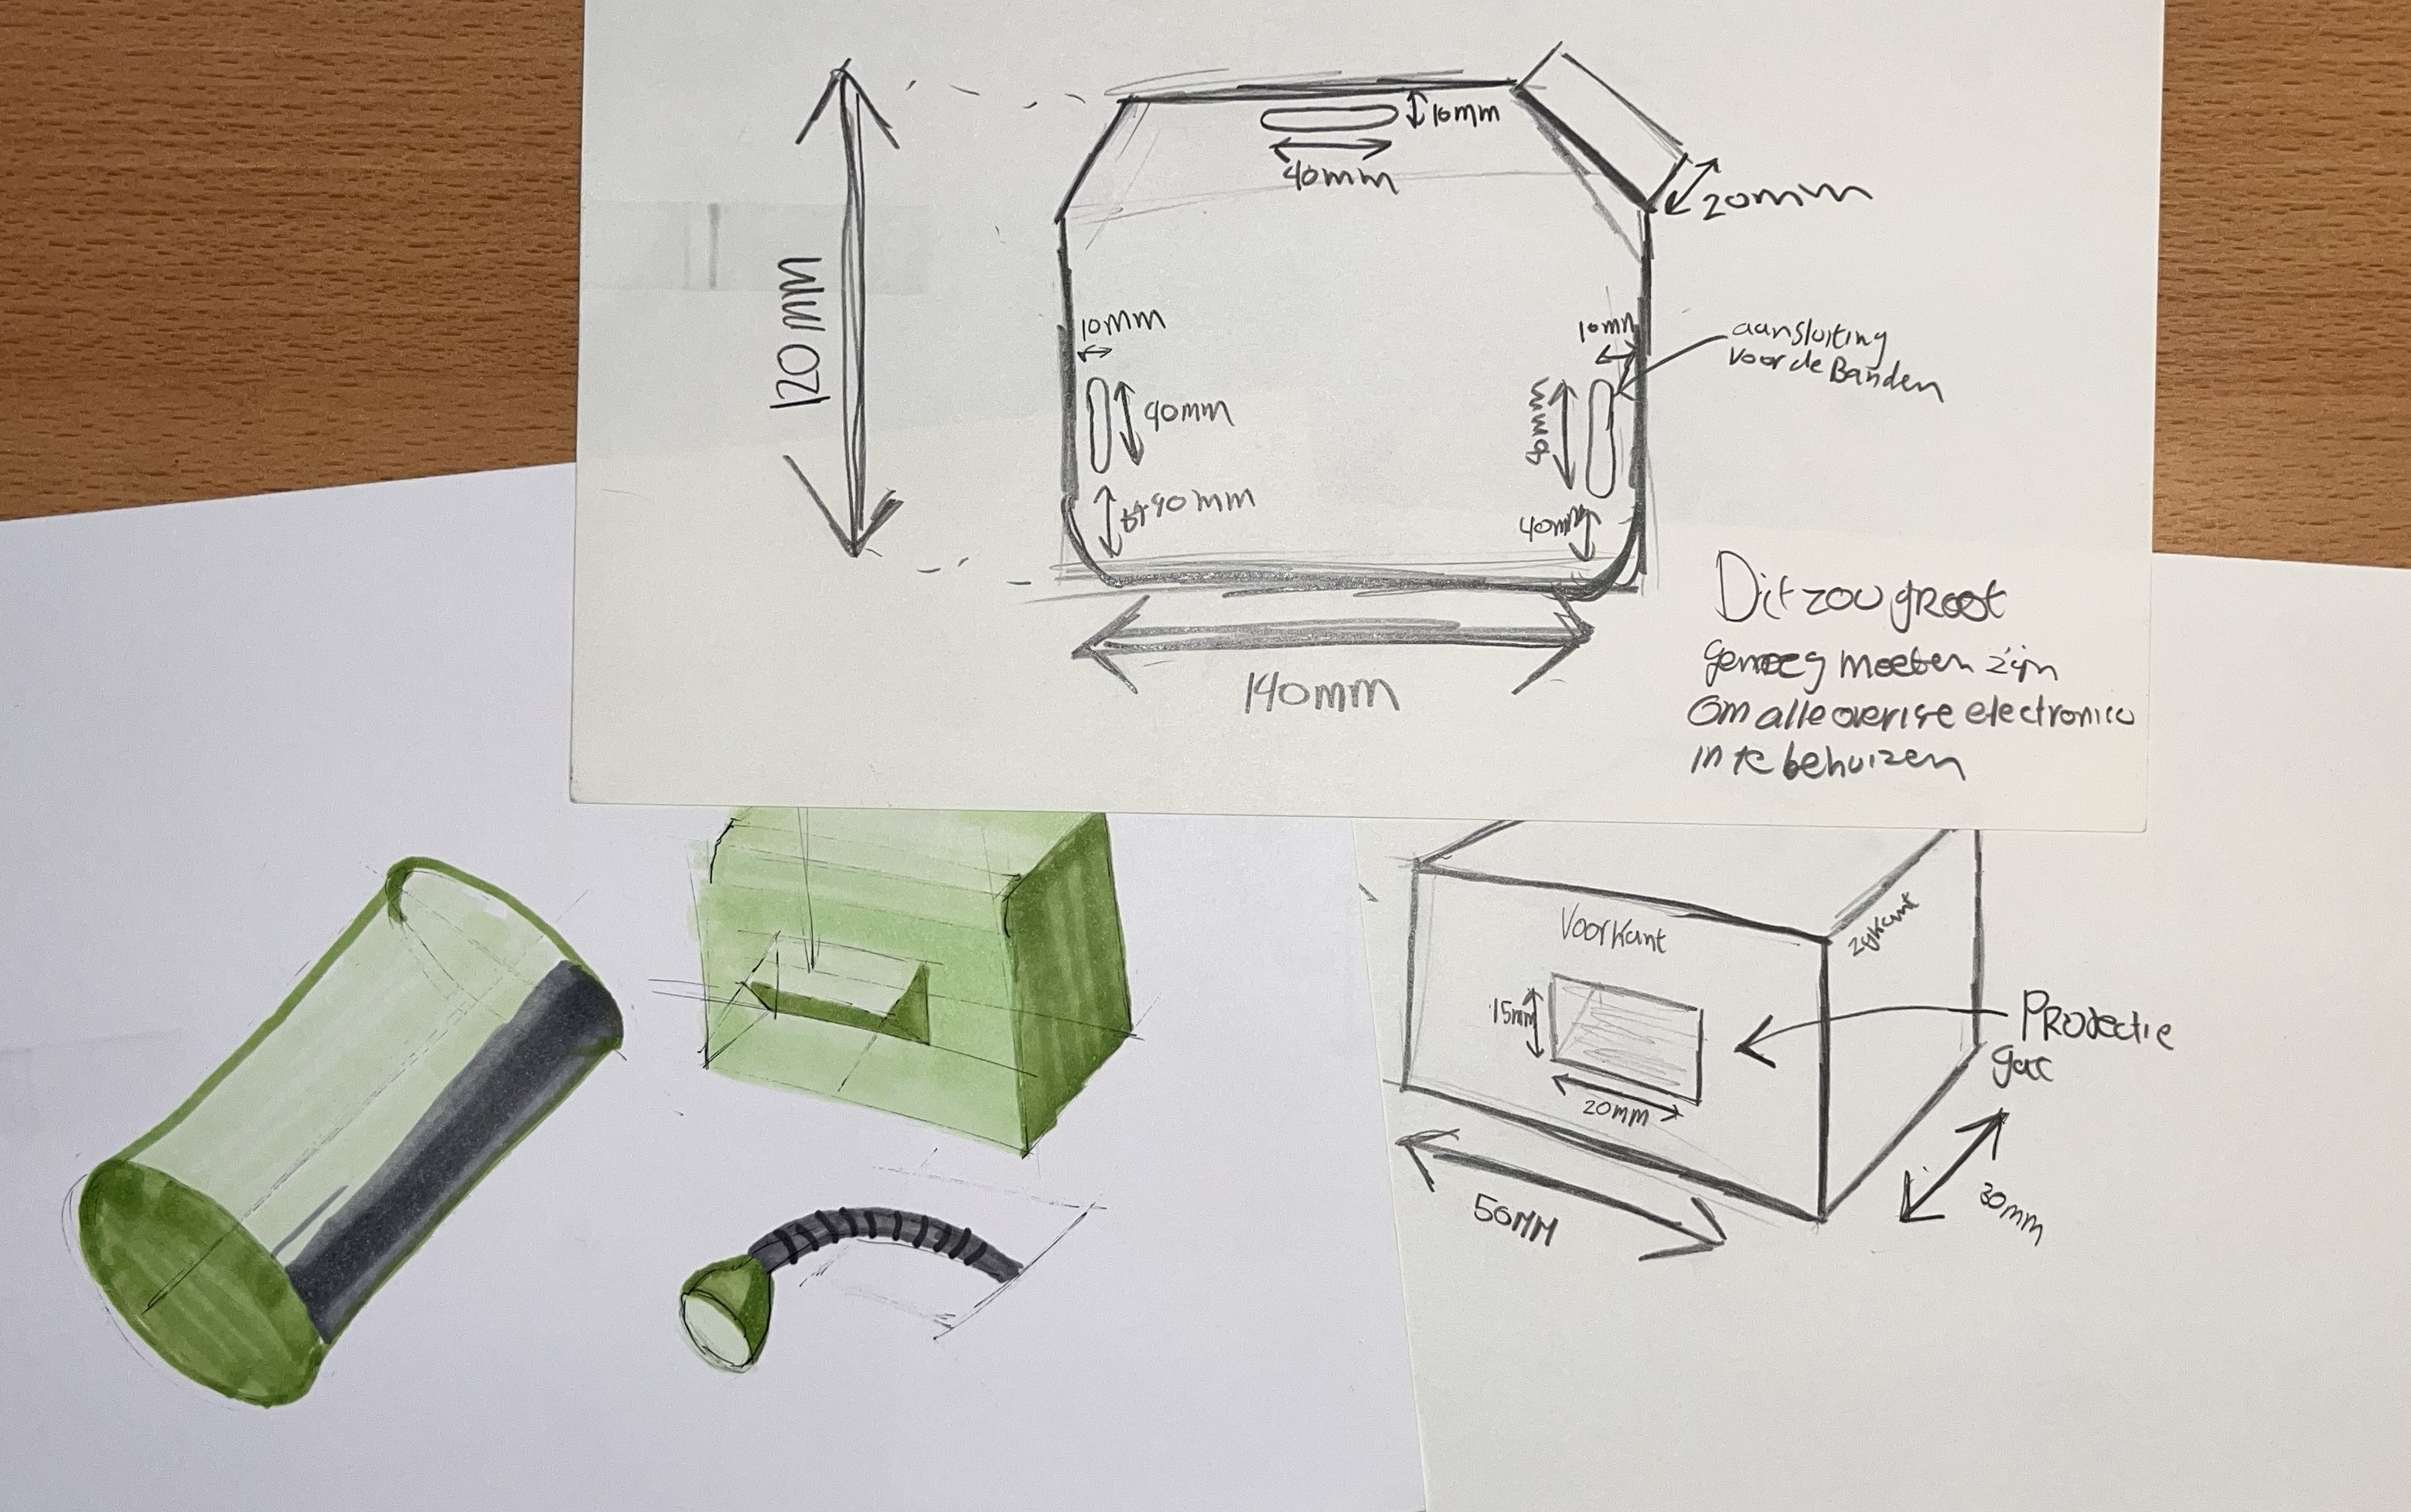 120mm
10mm
40mm
20mm
10mm
40mm
40mm
10mm
40mm
40mm
aansluiting
voor de Banden
140mm
Dit zou groot
genoeg moeten zijn
Om alle overige electronica
in te behuizen
Voorkant
zijkant
15mm
20mm
Projectie
gat
50MM
30mm